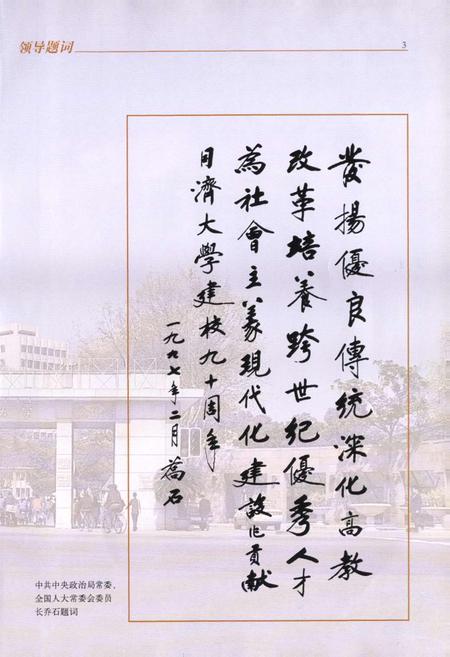 领导题词
3
發揚優良傳統深化高教
改革培養跨世紀優秀人才
為社會主義現代化建設作貢獻
同濟大學建校九十周年
一九九七年二月 喬石
中共中央政治局常委、
全国人大常委会委员
长乔石题词